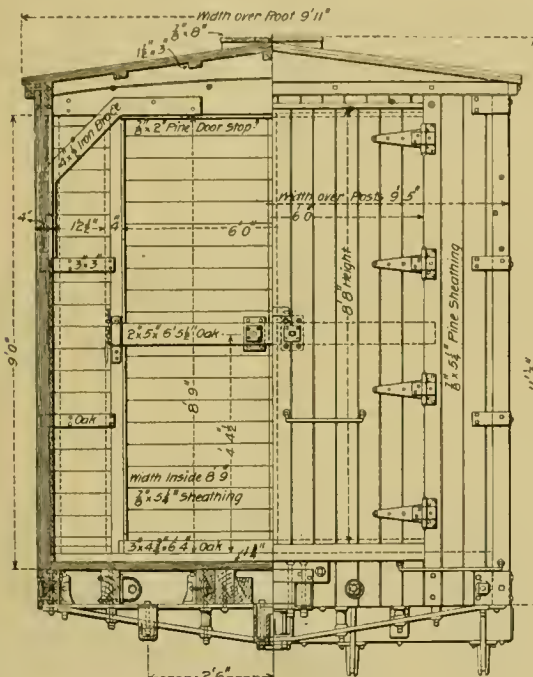 Width over Roof 9'11"
7/8" x 8"
1 1/2" x 3"
4" x 1/2" Iron Brace
7/8" x 2" Pine Door Stop
Width over Posts 9'5"
6'0"
4"
12 1/2"
4"
6'0"
3" x 3"
8'8" Height
7/8" x 5 1/4" Pine Sheathing
9'0"
2" x 5" x 6'5 1/2" Oak
8'9"
4'4 1/2"
Oak
Width Inside 8'9"
7/8" x 5 1/4" Sheathing
3" x 4 3/4" x 6'4" Oak
1 3/4"
2'6"